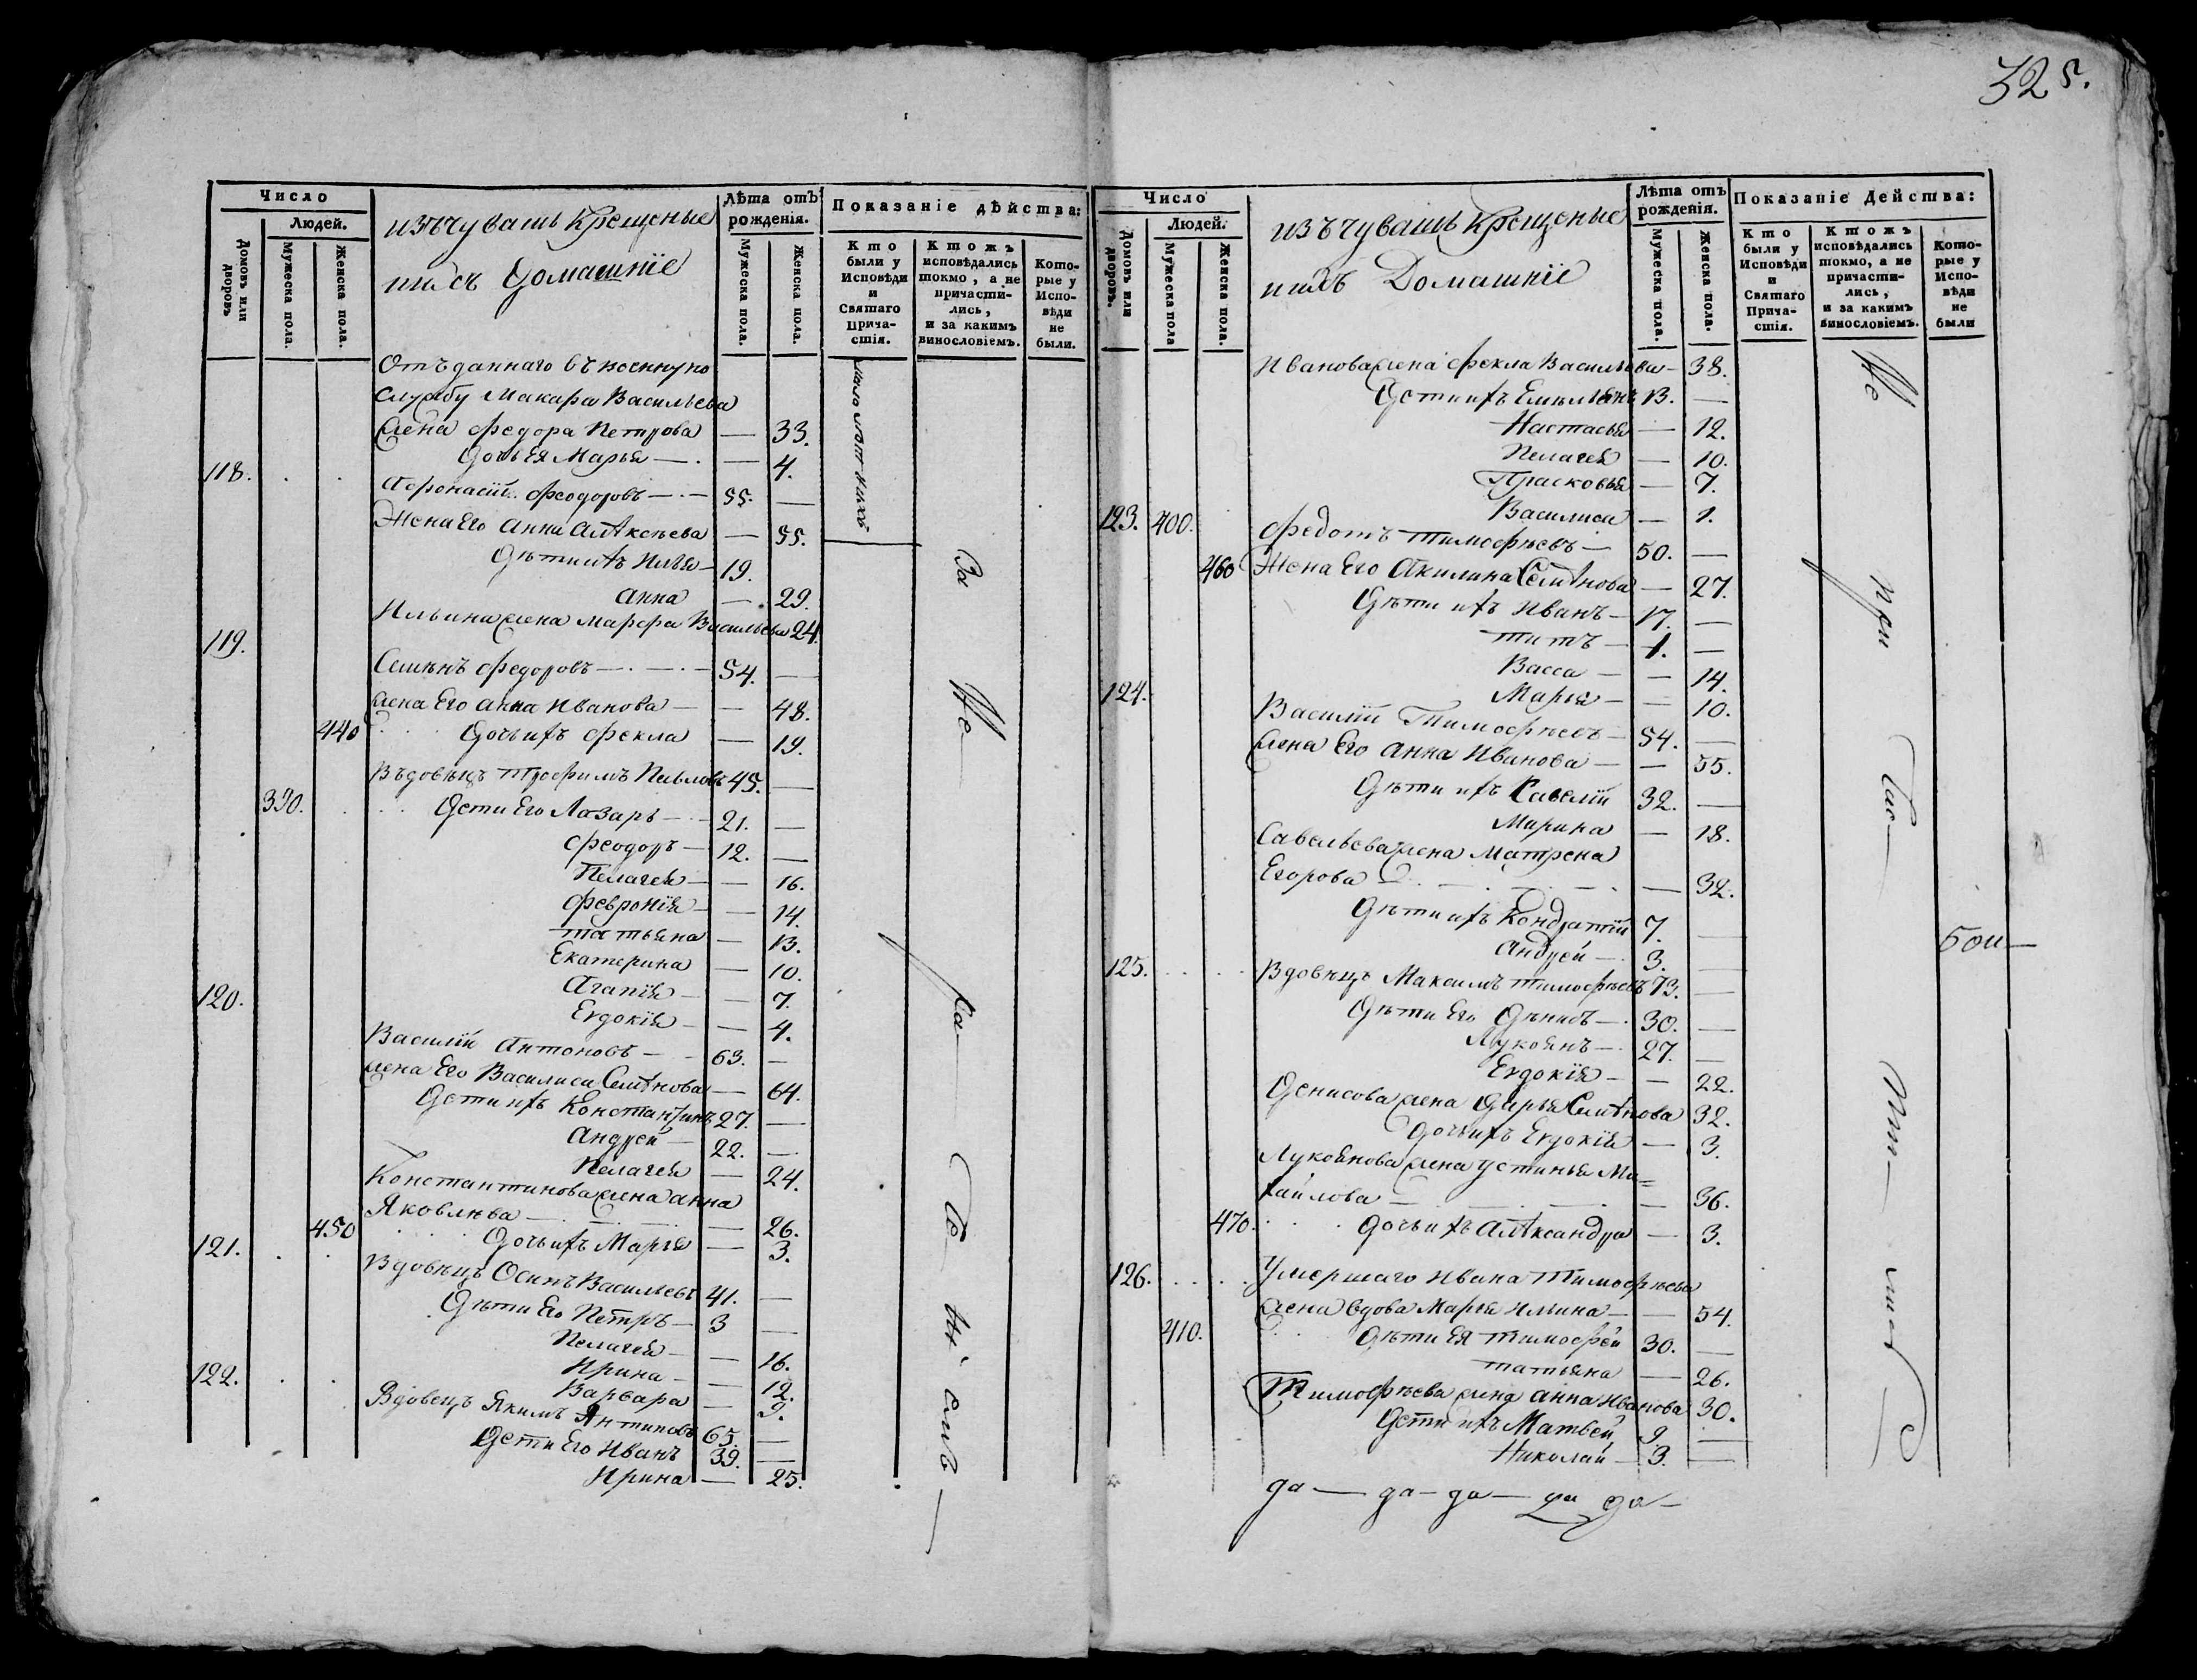 325.
Число
Людей.
Домовъ или дворовъ
Мужеска пола.
Женска пола.
изъ чувашъ крещеные
ихъ Домашніе
Лѣта отъ рожденія.
Мужеска пола.
Женска пола.
Показаніе дѣйства:
Кто были у Исповѣди и Святаго Прича-стія.
Ктожъ исповѣдались токмо, а не причасти-лись, и за какимъ винословіемъ.
Кото-рые у Испо-вѣди не были.
Отъданнаго въ военную
службу Макара Васильева
жена федора Петрова — 33.
дочь Ея Марья — 4.
118. Афонасій феодоровъ — 55. —
Жена Его Анна Алѣксѣева — 55.
дѣти ихъ Илья — 19.
Анна — 29.
Ильина жена Марфа Васильева 24.
119. Семѣнъ федоровъ — 54. —
жена Его Анна Иванова — 48.
440 дочь ихъ фекла — 19.
Въдовѣцъ Трофимъ Павловъ 45. —
390. Дети Его Лазарь — 21. —
феодоръ — 12. —
Пелагея — 16.
феврония — 14.
татьяна — 13.
Екатерина — 10.
Агапія — 7.
Евдокія — 4.
120. Василій Антоновъ — 63. —
жена Его Василиса Семѣнова — 64.
Дети ихъ Константинъ 27. —
Андрей — 22. —
Пелагея — 24.
Константинова жена анна
Яковлѣва — 26.
450 дочь ихъ Марья — 3.
121. Вдовѣцъ Осипъ Васильевъ 41. —
Дѣти Его Пѣтръ — 3 —
Пелагея — 16.
Ирина — 12.
Варвара — 9.
122. Вдовецъ Якимъ Антиповъ 65. —
Дети Его Иванъ 39. —
Ирина — 25.
Число
Людей.
Домовъ или дворовъ.
Мужеска пола
Женска пола.
изъ чувашъ крещеные
ихъ Домашніе
Лѣта отъ рожденія.
Мужеска пола.
Женска пола.
Показаніе Действа:
Кто были у Исповѣди и Святаго Прича-стія.
Ктожъ исповѣдались токмо, а не причасти-лись, и за какимъ винословіемъ.
Кото-рые у Испо-вѣди не были
Иванова жена фекла Васильева — 38.
Дети ихъ Емельянъ 13. —
Настасья — 12.
Пелагея — 10.
Прасковья — 7.
Василиса — 1.
123. 400. федотъ тимофѣевъ — 50. —
460 Жена Его Акилина Семѣнова — 27.
Дѣти ихъ Иванъ — 17. —
титъ — 1. —
Васса — 14.
Марья — 10.
124. Василій Тимофѣевъ — 54. —
жена Его Анна Иванова — 55.
Дѣти ихъ Савелій 32. —
Марина — 18.
Савельева жена Матрена
Егорова — 32.
Дѣти ихъ Кондратій 7. —
Андрей — 3. —
125. Вдовѣцъ Максимъ тимофѣевъ 73. —
Дѣти Его Дѣнисъ — 30. —
Лукоянъ — 27. —
Евдокія — 22.
Денисова жена Дарья Семѣнова 32.
дочь ихъ Евдокія — 3.
Лукоянова жена устинья Ми=
хайлова — 36.
470. дочь ихъ Алѣксандра — 3.
126. Умершаго Ивана Тимофѣева
жена вдова Марья Ильина — 54.
410. Дѣти Ея тимофей 30. —
татьяна — 26.
Тимофѣева жена анна Иванова 30.
Дети ихъ Матвей 9 —
Николай — 3. —